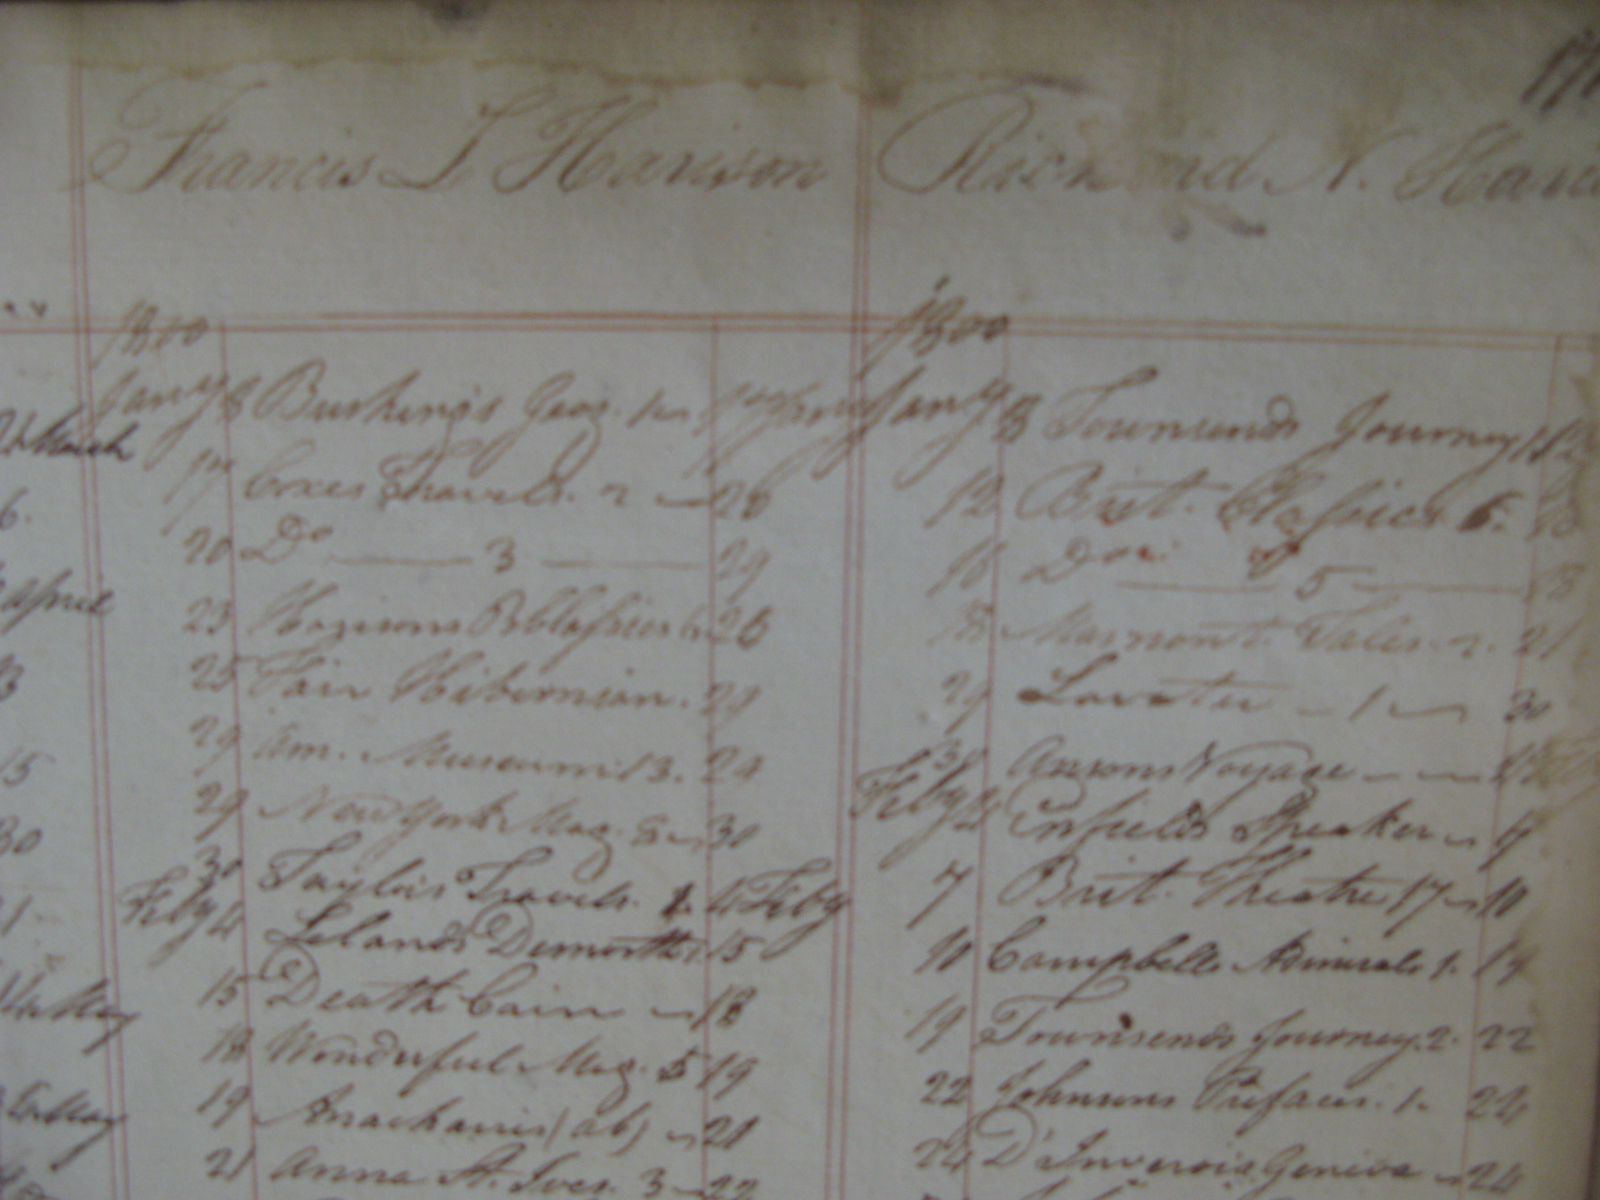 179
Francis L Harison
Richard N. Hari
1800
Jany 8 Bushing's Geog. 1 17
17 Coxes Travels. 2 20
20 Do 3 29
23 25
25 Fair Hibernian. 29
29 Am. Museum 13. 29
29 New York Mag. 30
30 Taylors Travels. 1. 4 Feby
Feby 4 Lelands Demosth 1. 15
15 Death Cain 18
18 Wonderful Mag. 5 19
19 Anacharsis (ab) 21
21 Anna St. Ives. 3 22
1800
Jany 8 Townsends Journey 1 12
12 Brit. Classics 6.
16 Do 5 18
18 Marmont. Tales. 2. 21
29 Lavater 1 30
30 Ansons Voyage
Feby 4 Enfields Speaker
7 Brit. Theatre 17 10
10 Campbells Admirals 1. 14
19 Townsends Journey. 2. 22
22 Johnsons Prefaces. 1. 24
24 D'Invernois Geneva 24
March
6.
April
3
15
30
May
May